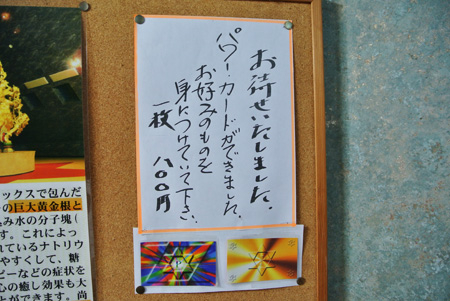 お待せいたしました。
パワー・カードができました。
お好みのものを
身につけていて下さい。
一枚 八〇〇円
ックスで包んだ
の巨大黄金根と
込み水の分子塊(
す。これによっ
れているナトリウ
やすくして、糖
ピーなどの症状を
心の癒し効果も大
とができます。尚